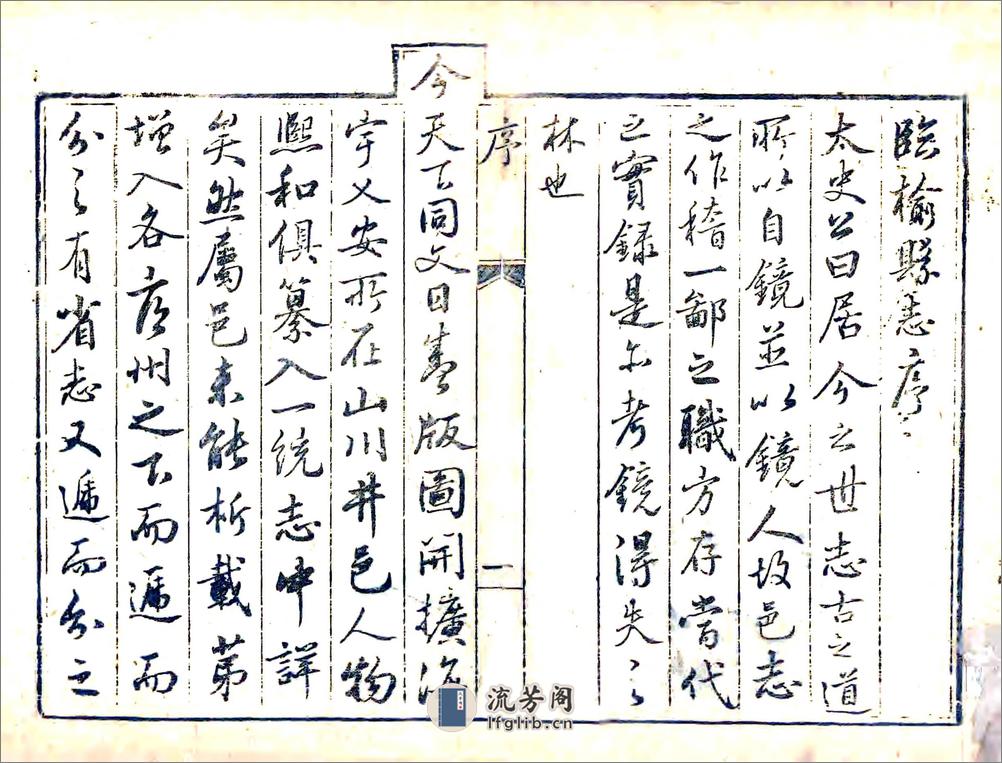 臨榆縣志序
太史公曰居今之世志古之道
所以自鏡並以鏡人故邑志
之作稽一鄙之職方存當代
之實錄是亦考鏡得失之
林也
序
一
今天下同文日盛版圖開擴海
宇乂安所在山川井邑人物
熙和俱纂入一統志中詳
矣然屬邑未能析載第
增入各府州之下而遞而
分之有省志又遞而分之
流芳阁
lfglib.cn